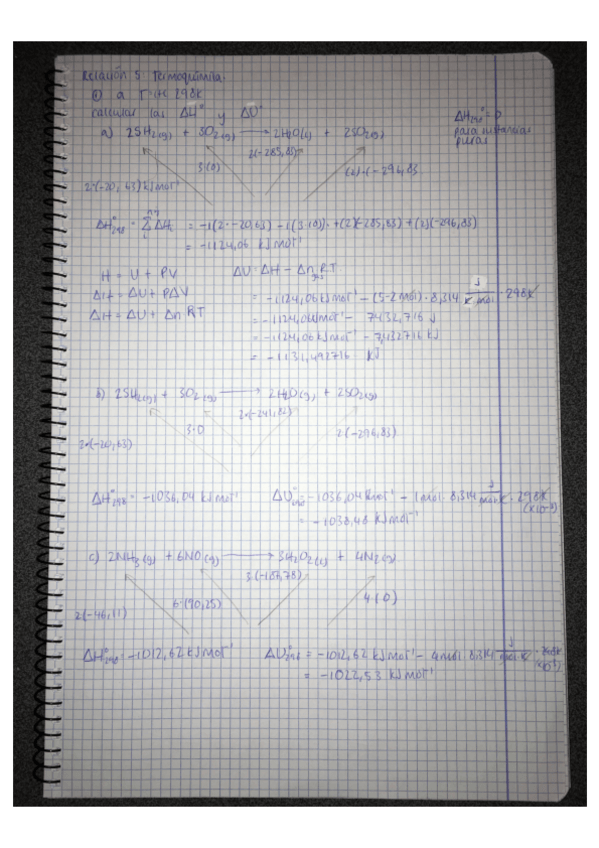 Relación 5 Termoquímica.
① a T=cte 298K
calcular las ΔH° y ΔU°
ΔH°298 = 0
para sustancias
puras
a) 2SH2(g) + 3O2(g) → 2H2O(l) + 2SO2(g)
3·(0)
2(-285,83)
(2)·(-296,83
2·(-20,63) kJmol⁻¹
ΔH°298 = ΣΔHi = -1(2·-20,63) -1(3·(0)) + (2)(-285,83) + (2)(-296,83)
= -1124,06 kJmol⁻¹
H = U + PV
ΔU = ΔH - Δn RT
ΔH = ΔU + PΔV
= -1124,06 kJmol⁻¹ - (5-2mol)·8,314 J/K·mol · 298K
ΔH = ΔU + Δn RT
= -1124,06kJmol⁻¹ - 7432,716 J
= -1124,06 kJmol⁻¹ - 7,432716 kJ
= -1131,492716 kJ
b) 2SH2(g) + 3O2(g) → 2H2O(g) + 2SO2(g)
2·(-241,82)
3·0
2(-296,83)
2·(-20,63)
ΔH°298 = -1036,04 kJmol⁻¹
ΔU°298 = -1036,04 kJmol⁻¹ - 1mol·8,314 J/mol·K · 298K
(x10⁻³)
= -1038,48 kJmol⁻¹
c) 2NH3(g) + 6NO(g) → 3H2O2(l) + 4N2(g)
3·(-187,78)
6·(90,25)
4(0)
2(-46,11)
ΔH°298 = -1012,62 kJmol⁻¹
ΔU°298 = -1012,62 kJmol⁻¹ - 4mol·8,314 J/mol·K · 298K
(x10⁻³)
= -1022,53 kJmol⁻¹